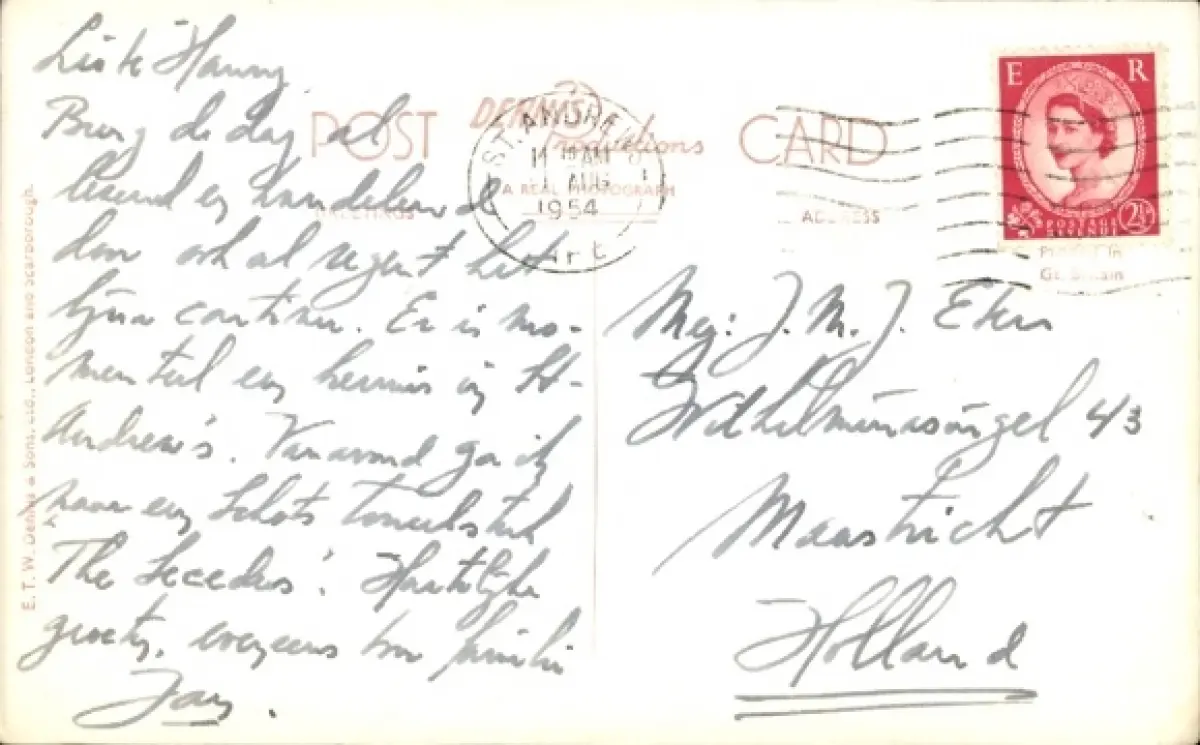 Hanny
Breng de dag al
lezend en wandelend
door ook al regent het
bijna continu. Er is mo-
menteel een kermis in St-
Andrew's. Vanavond ga ik
naar een Schots toneelstuk
'The Seceders'. Hartelijke
groeten, eveneens voor familie
POST CARD
DENNIS
Productions
A REAL PHOTOGRAPH
GREETINGS
ADDRESS
ST. ANDREWS
11 15 AM
AUG
1954
FIFE
E R
POSTAGE
REVENUE
2½
Printed in
Gt. Britain
Mej: J. M. J.
Wilhelminasingel 43
Maastricht
Holland
E. T. W. Dennis & Sons, Ltd., London and Scarborough.